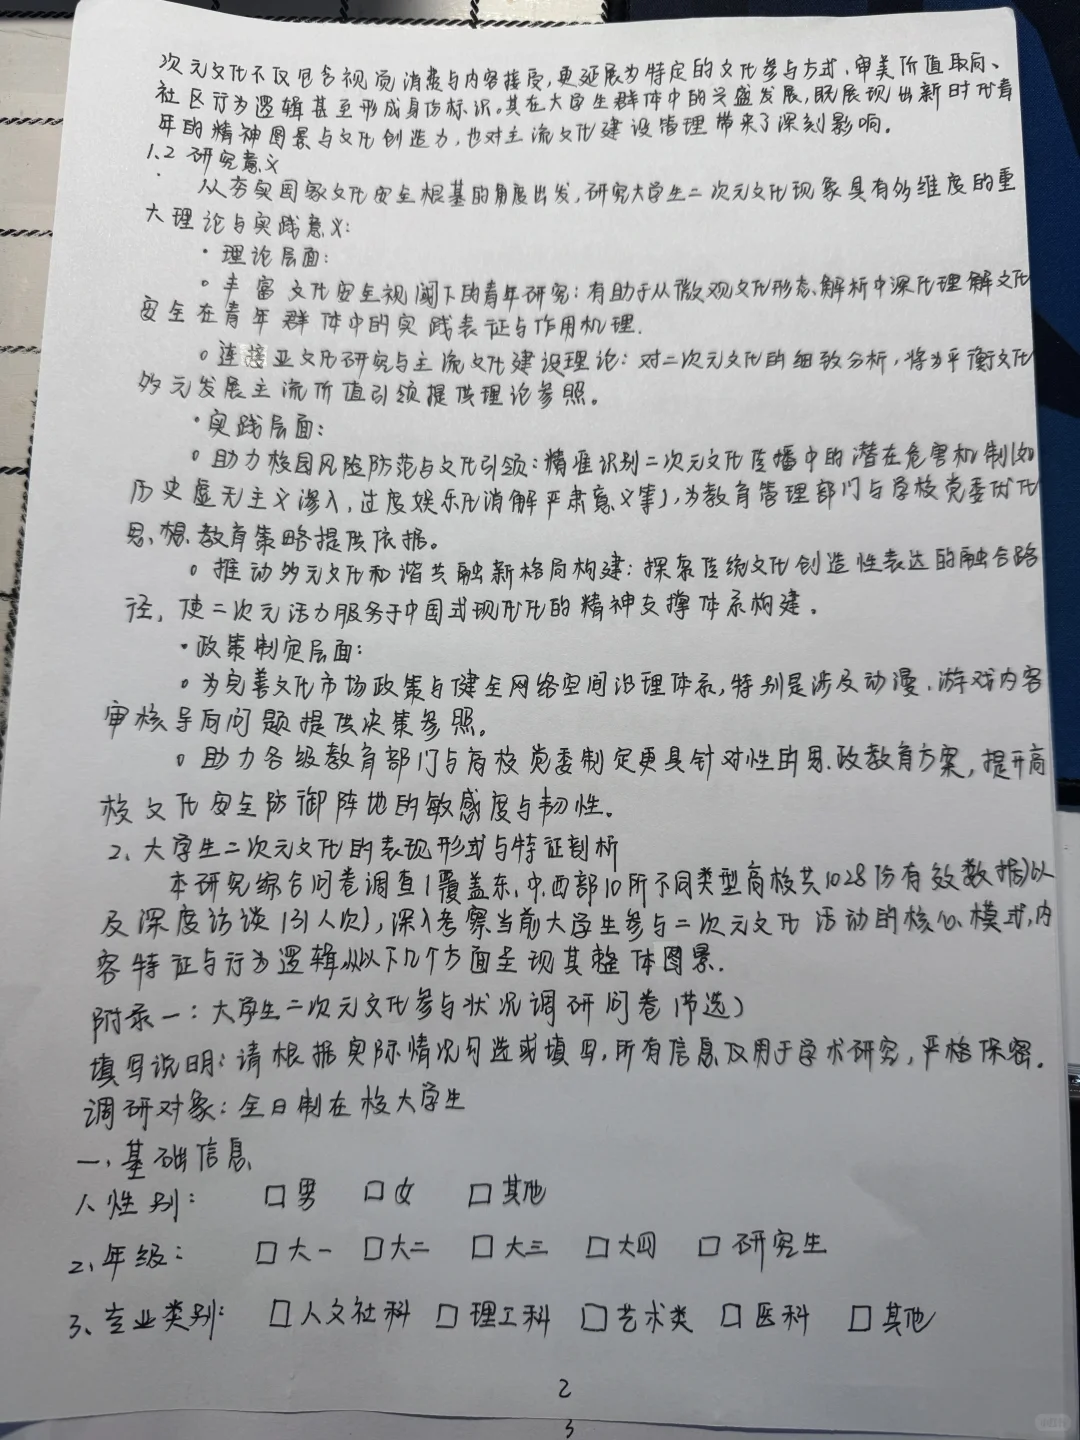 次元文化不仅包含视觉消费与内容接受,更延展为特定的文化参与方式、审美价值取向、
社区行为逻辑甚至形成身份标识。其在大学生群体中的兴盛发展,既展现出新时代青
年的精神图景与文化创造力,也对主流文化建设管理带来了深刻影响。
1.2 研究意义
从夯实国家文化安全根基的角度出发,研究大学生二次元文化现象具有多维度的重
大理论与实践意义:
·理论层面:
○丰富文化安全视阈下的青年研究:有助于从微观文化形态解析中深化理解文化
安全在青年群体中的实践表征与作用机理.
○连接亚文化研究与主流文化建设理论:对二次元文化的细致分析,将为平衡文化
多元发展主流价值引领提供理论参照。
·实践层面:
○助力校园风险防范与文化引领:精准识别二次元文化传播中的潜在危害机制(如
历史虚无主义渗入,过度娱乐化消解严肃意义等),为教育管理部门与学校党委优化
思想教育策略提供依据。
○推动多元文化和谐共融新格局构建:探索传统文化创造性表达的融合路
径,使二次元活力服务于中国式现代化的精神支撑体系构建。
·政策制定层面:
○为完善文化市场政策与健全网络空间治理体系,特别是涉及动漫、游戏内容
审核导向问题提供决策参照。
○助力各级教育部门与高校党委制定更具针对性的思政教育方案,提升高
校文化安全防御阵地的敏感度与韧性。
2、大学生二次元文化的表现形式与特征剖析
本研究综合问卷调查(覆盖东、中、西部10所不同类型高校共1028份有效数据)以
及深度访谈(31人次),深入考察当前大学生参与二次元文化活动的核心模式,内
容特征与行为逻辑从以下几个方面呈现其整体图景.
附录一:大学生二次元文化参与状况调研问卷(节选)
填写说明:请根据实际情况勾选或填写,所有信息仅用于学术研究,严格保密.
调研对象:全日制在校大学生
一、基础信息
1、性别: □男 □女 □其他
2、年级: □大一 □大二 □大三 □大四 □研究生
3、专业类别: □人文社科 □理工科 □艺术类 □医科 □其他
2
3